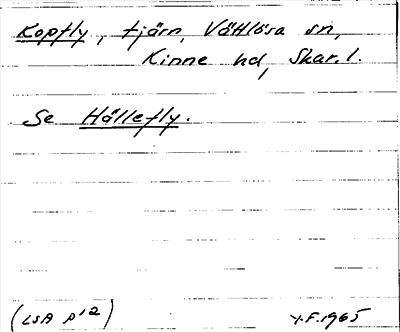 Kopfly, tjärn, Vättlösa sn,
Kinne hd, Skar. l.
Se Hällefly.
(LSA P'2)
Y.F. 1965